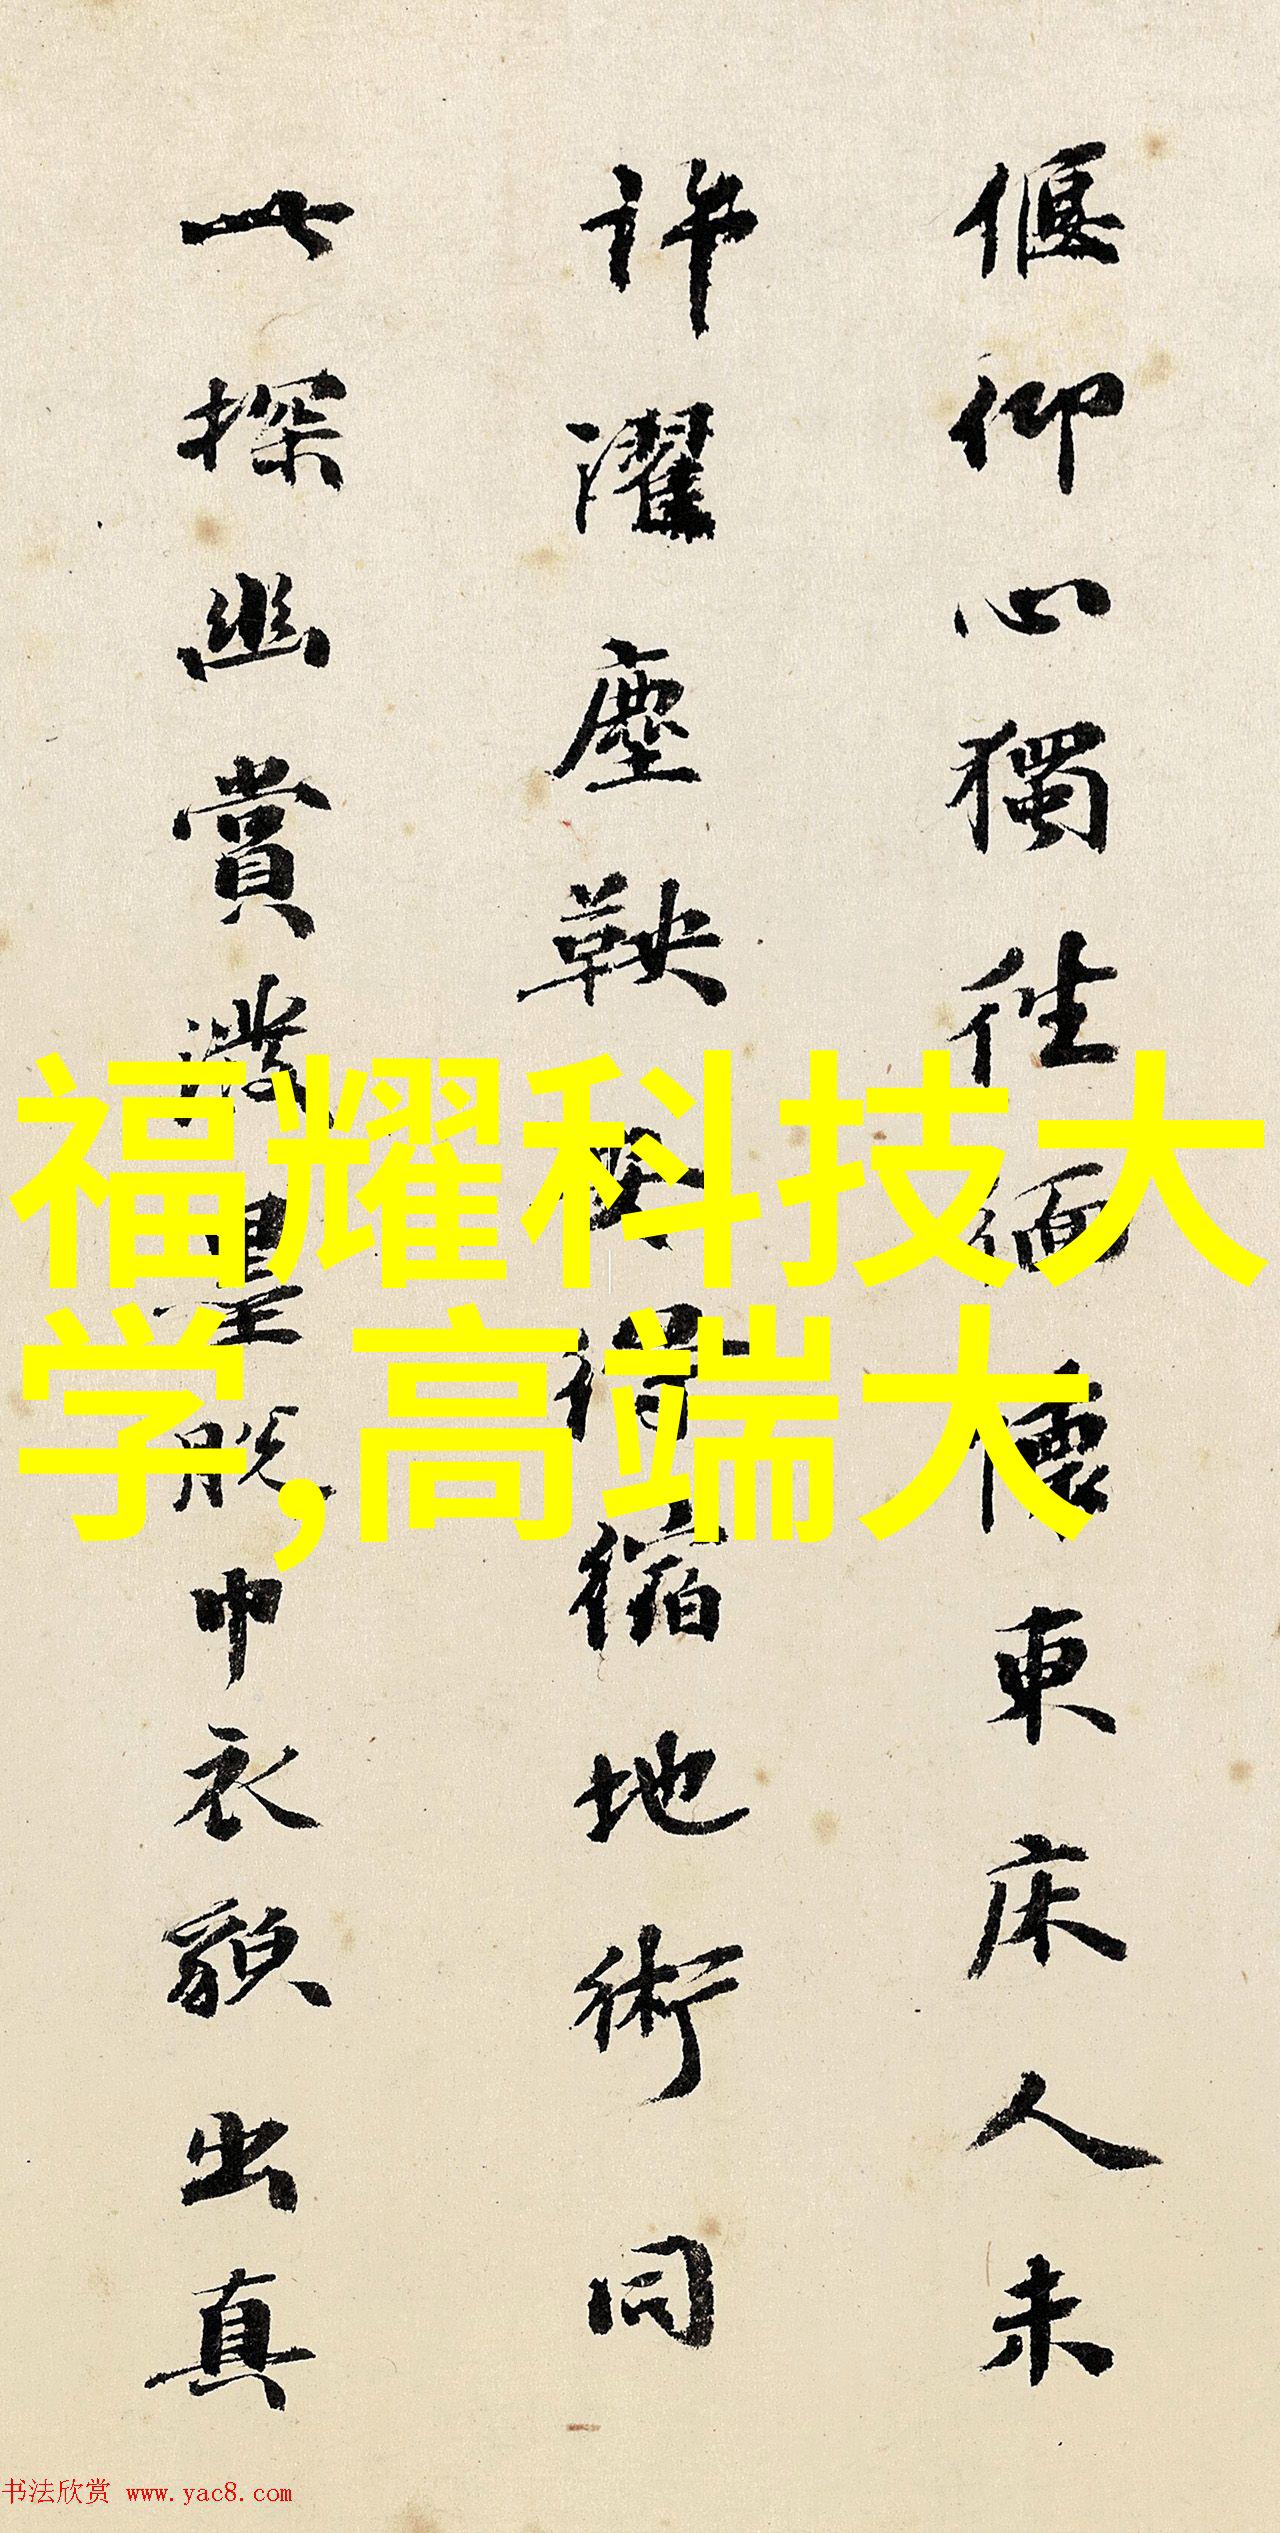 偃仰心獨往緬懷東床人未
許濯塵鞅 得縮地術同
一探幽賞濃墨脫巾衣貌出真
福耀科技大
学,高端大
书法欣赏 www.yac8.com